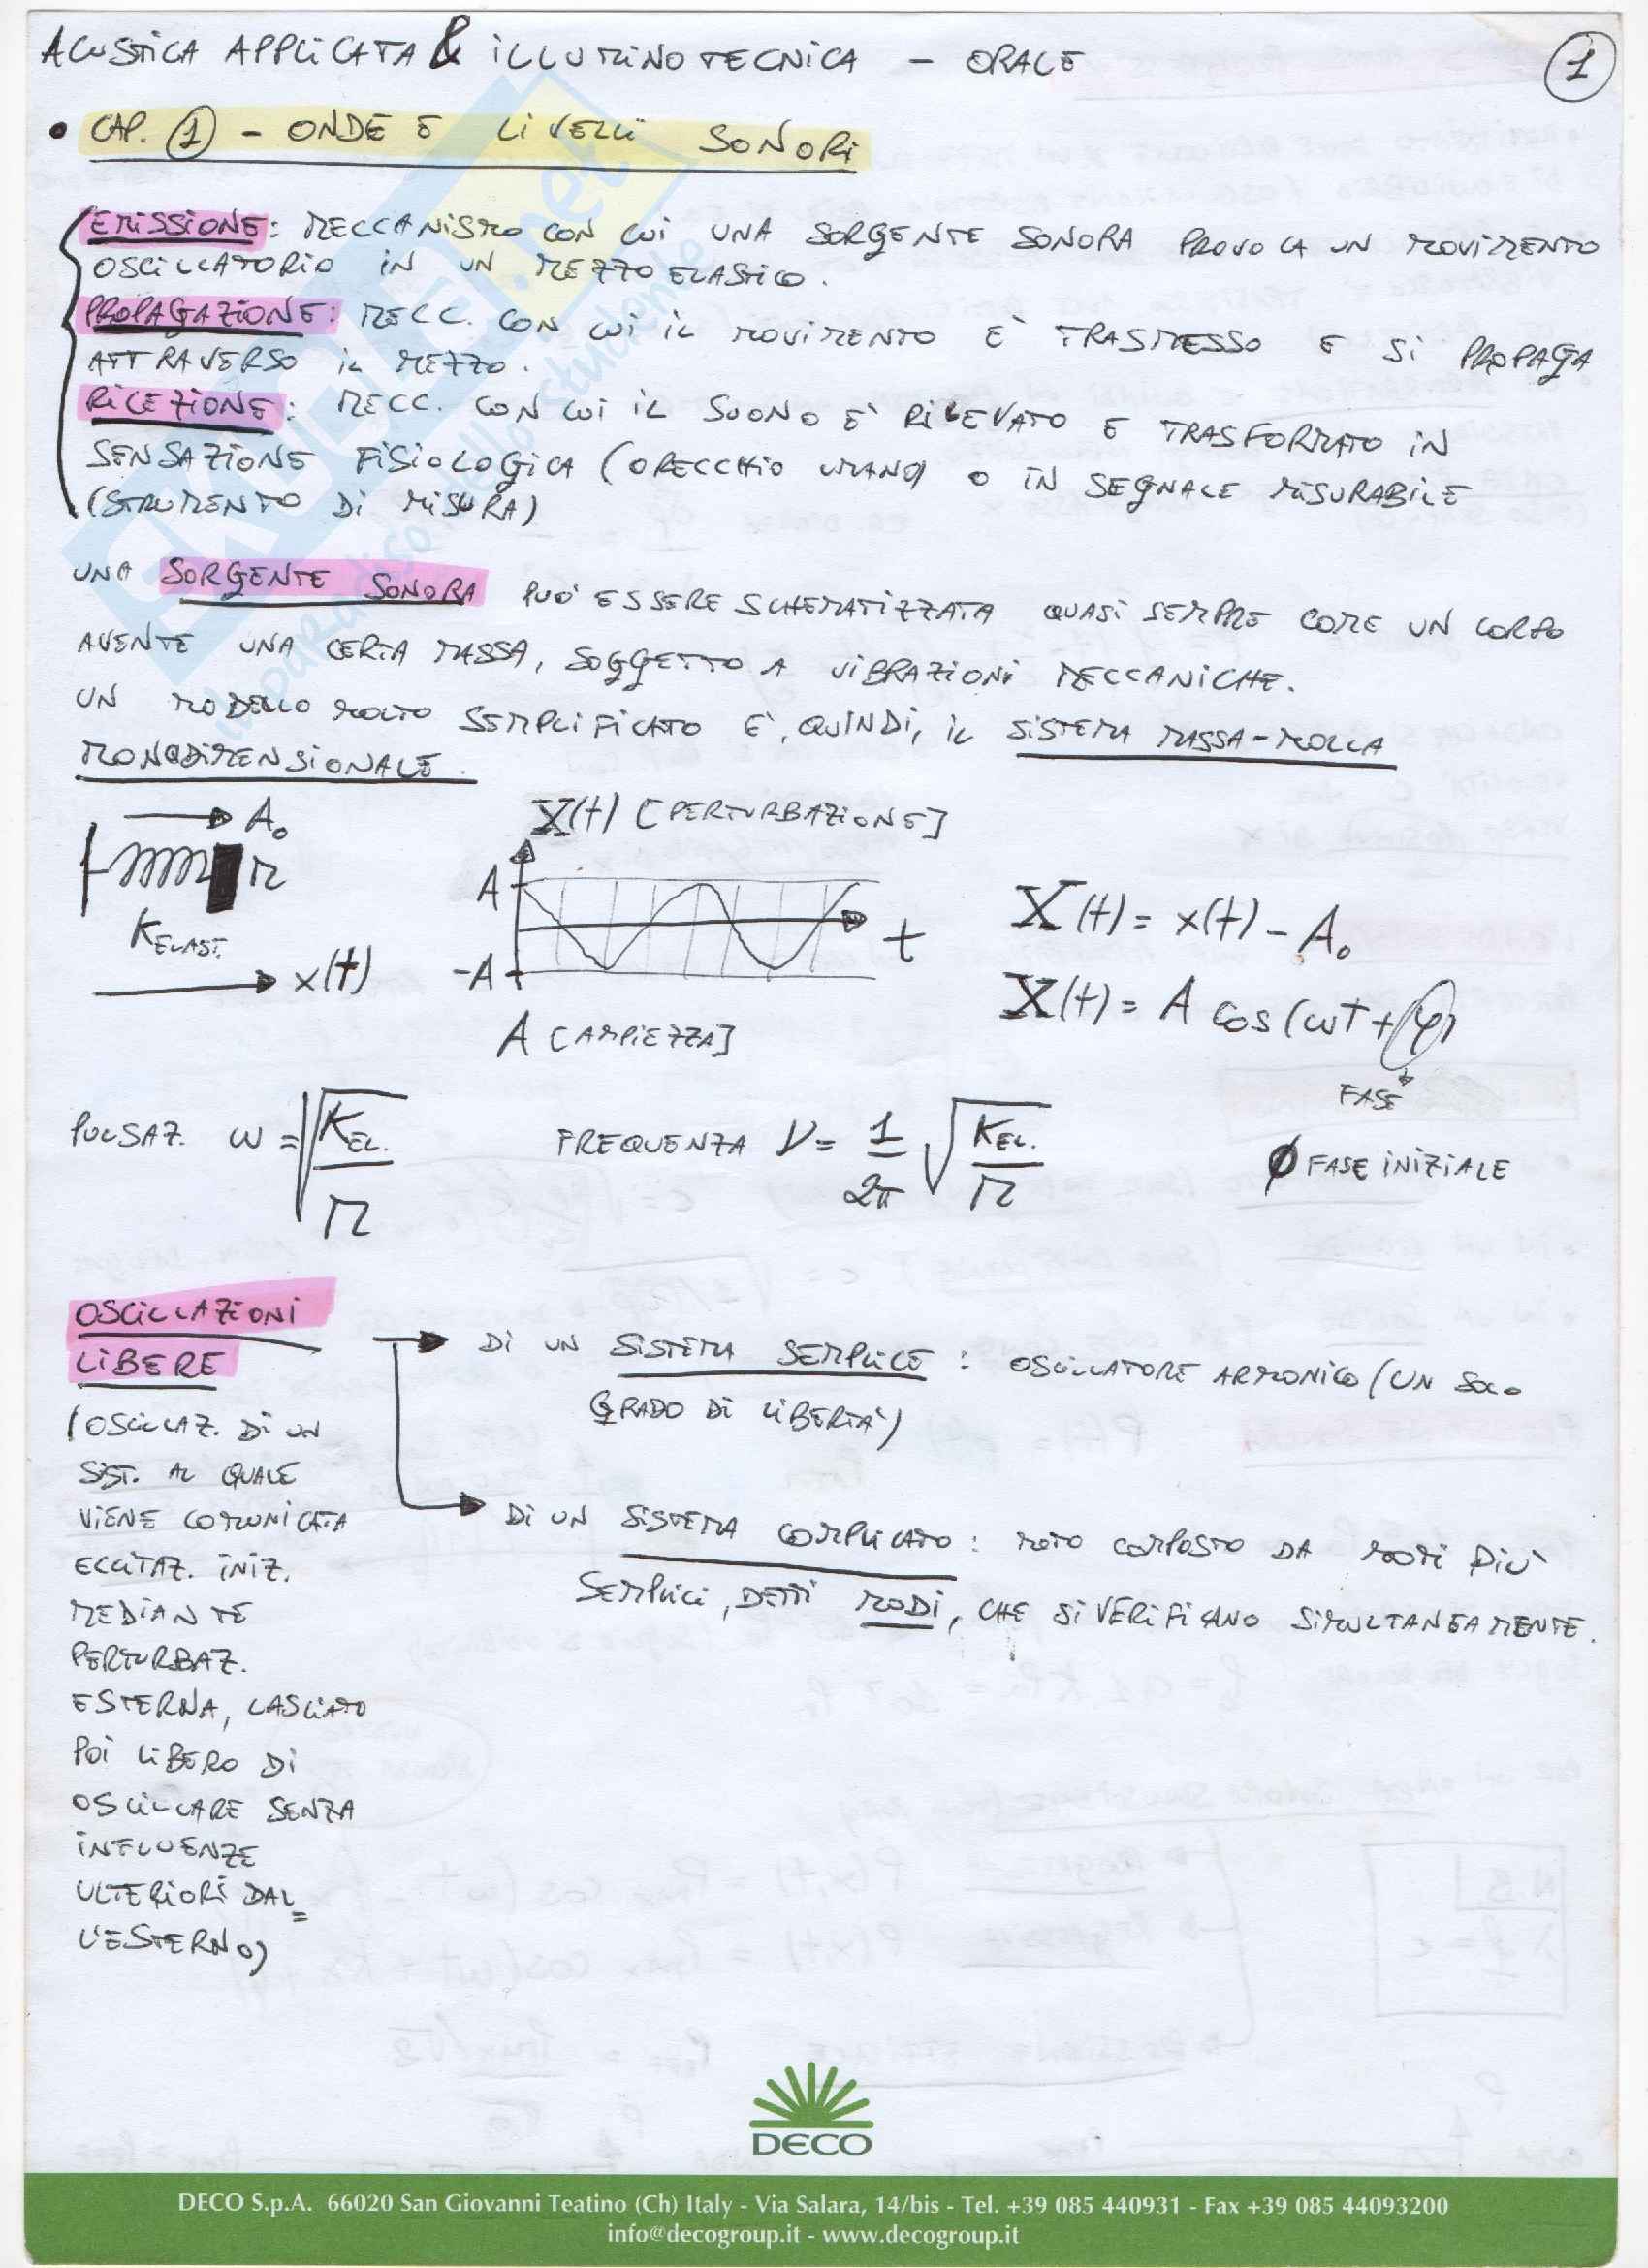 ACUSTICA APPLICATA & ILLUMINOTECNICA - ORALE
1
• CAP. 1 - ONDE E LIVELLI SONORI
EMISSIONE: MECCANISMO CON CUI UNA SORGENTE SONORA PROVOCA UN MOVIMENTO
OSCILLATORIO IN UN MEZZO ELASTICO.
PROPAGAZIONE: MECC. CON CUI IL MOVIMENTO È TRASMESSO E SI PROPAGA
ATTRAVERSO IL MEZZO.
RICEZIONE: MECC. CON CUI IL SUONO È RILEVATO E TRASFORMATO IN
SENSAZIONE FISIOLOGICA (ORECCHIO UMANO) O IN SEGNALE MISURABILE
(STRUMENTO DI MISURA)
UNA SORGENTE SONORA PUÒ ESSERE SCHEMATIZZATA QUASI SEMPRE COME UN CORPO
AVENTE UNA CERTA MASSA, SOGGETTO A VIBRAZIONI MECCANICHE.
UN MODELLO MOLTO SEMPLIFICATO È, QUINDI, IL SISTEMA MASSA-MOLLA
MONODIMENSIONALE.
A₀
M
K ELAST.
x(t)
X(t) [PERTURBAZIONE]
A
-A
t
A [AMPIEZZA]
X(t) = x(t) - A₀
X(t) = A cos(ωt + φ)
FASE
PULSAZ. ω = √(K EL. / M)
FREQUENZA ν = 1/2π √(K EL. / M)
φ FASE INIZIALE
OSCILLAZIONI
LIBERE
(OSCILLAZ. DI UN
SIST. AL QUALE
VIENE COMUNICATA
ECCITAZ. INIZ.
MEDIANTE
PERTURBAZ.
ESTERNA, LASCIATO
POI LIBERO DI
OSCILLARE SENZA
INFLUENZE
ULTERIORI DAL=
L'ESTERNO)
DI UN SISTEMA SEMPLICE: OSCILLATORE ARMONICO (UN SOLO
GRADO DI LIBERTÀ)
DI UN SISTEMA COMPLICATO: MOTO COMPOSTO DA MODI PIÙ
SEMPLICI, DETTI MODI, CHE SI VERIFICANO SIMULTANEAMENTE.
DECO
DECO S.p.A. 66020 San Giovanni Teatino (Ch) Italy - Via Salara, 14/bis - Tel. +39 085 440931 - Fax +39 085 44093200
info@decogroup.it - www.decogroup.it